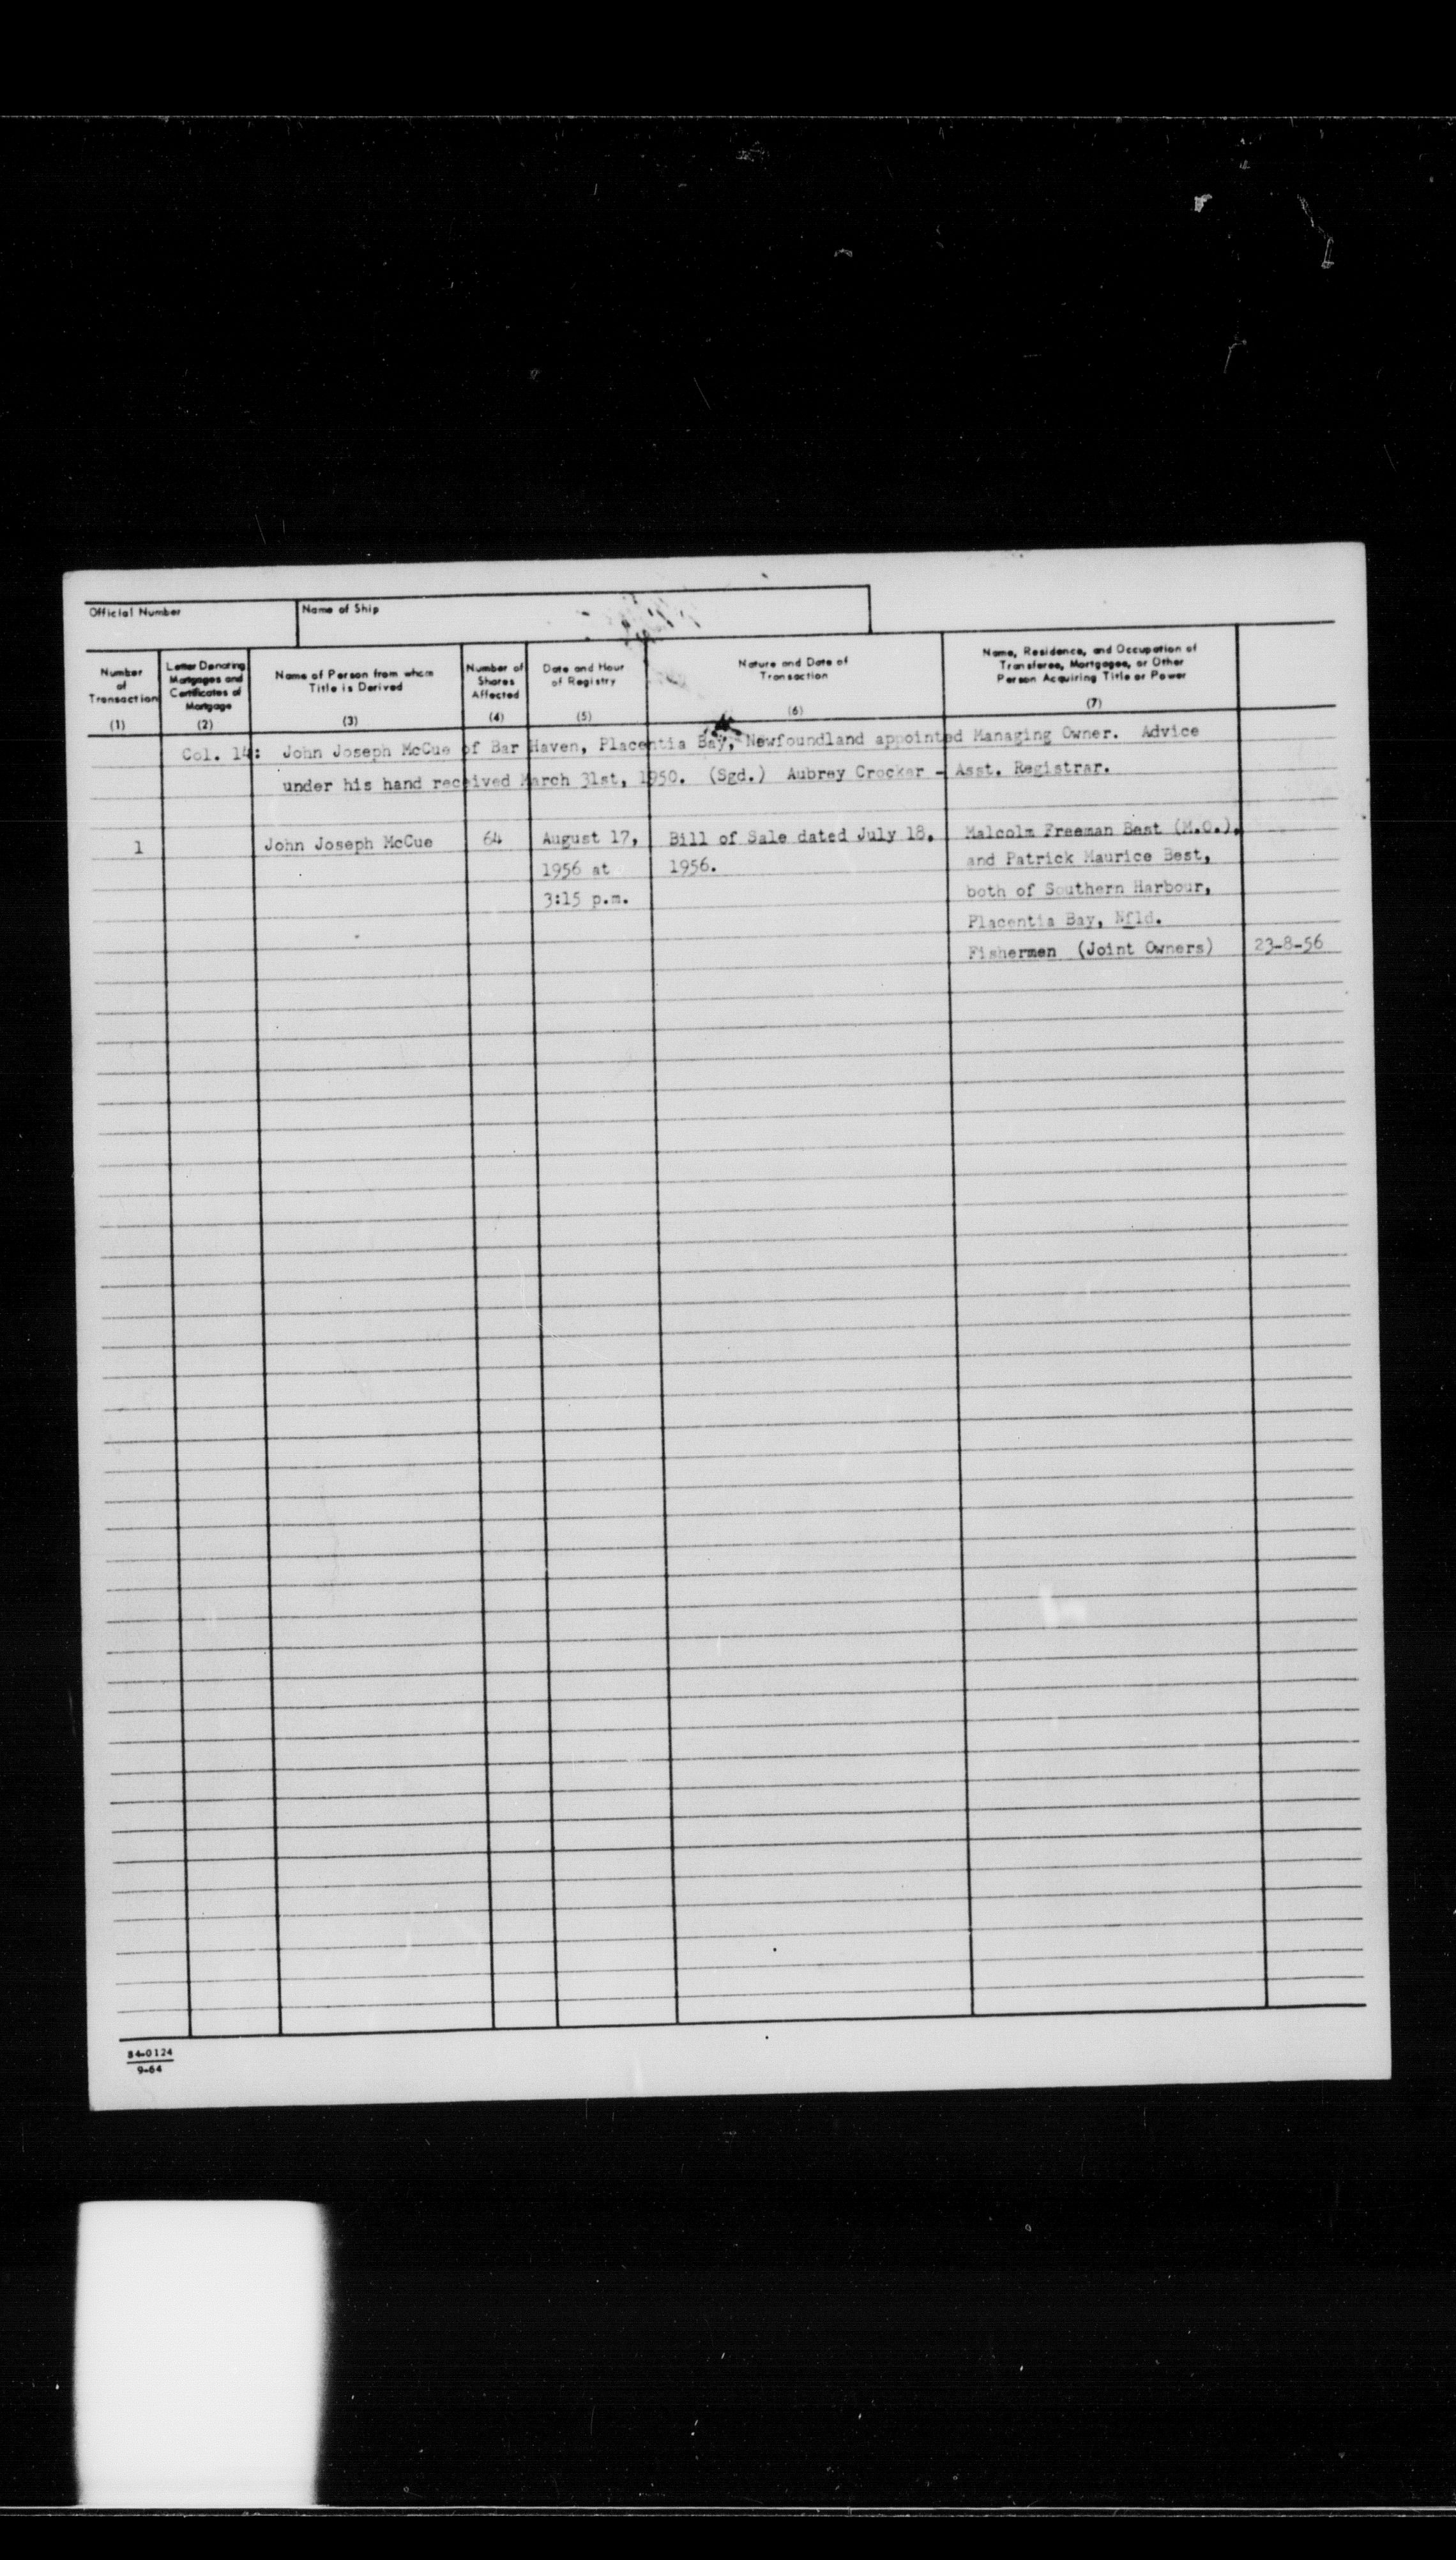 Official Number
Name of Ship
Number of Transaction (1)
Letter Denoting Mortgages and Certificates of Mortgage (2)
Name of Person from whom Title is Derived (3)
Number of Shares Affected (4)
Date and Hour of Registry (5)
Nature and Date of Transaction (6)
Name, Residence, and Occupation of Transferee, Mortgagee, or Other Person Acquiring Title or Power (7)
Col. 14: John Joseph McCue of Bar Haven, Placentia Bay, Newfoundland appointed Managing Owner. Advice
under his hand received March 31st, 1950. (Sgd.) Aubrey Crocker - Asst. Registrar.
1 John Joseph McCue 64 August 17, Bill of Sale dated July 18, Malcolm Freeman Best (M.O.),
1956 at 1956. and Patrick Maurice Best,
3:15 p.m. both of Southern Harbour,
Placentia Bay, Nfld.
Fishermen (Joint Owners) 23-8-56
84-0124
9-64